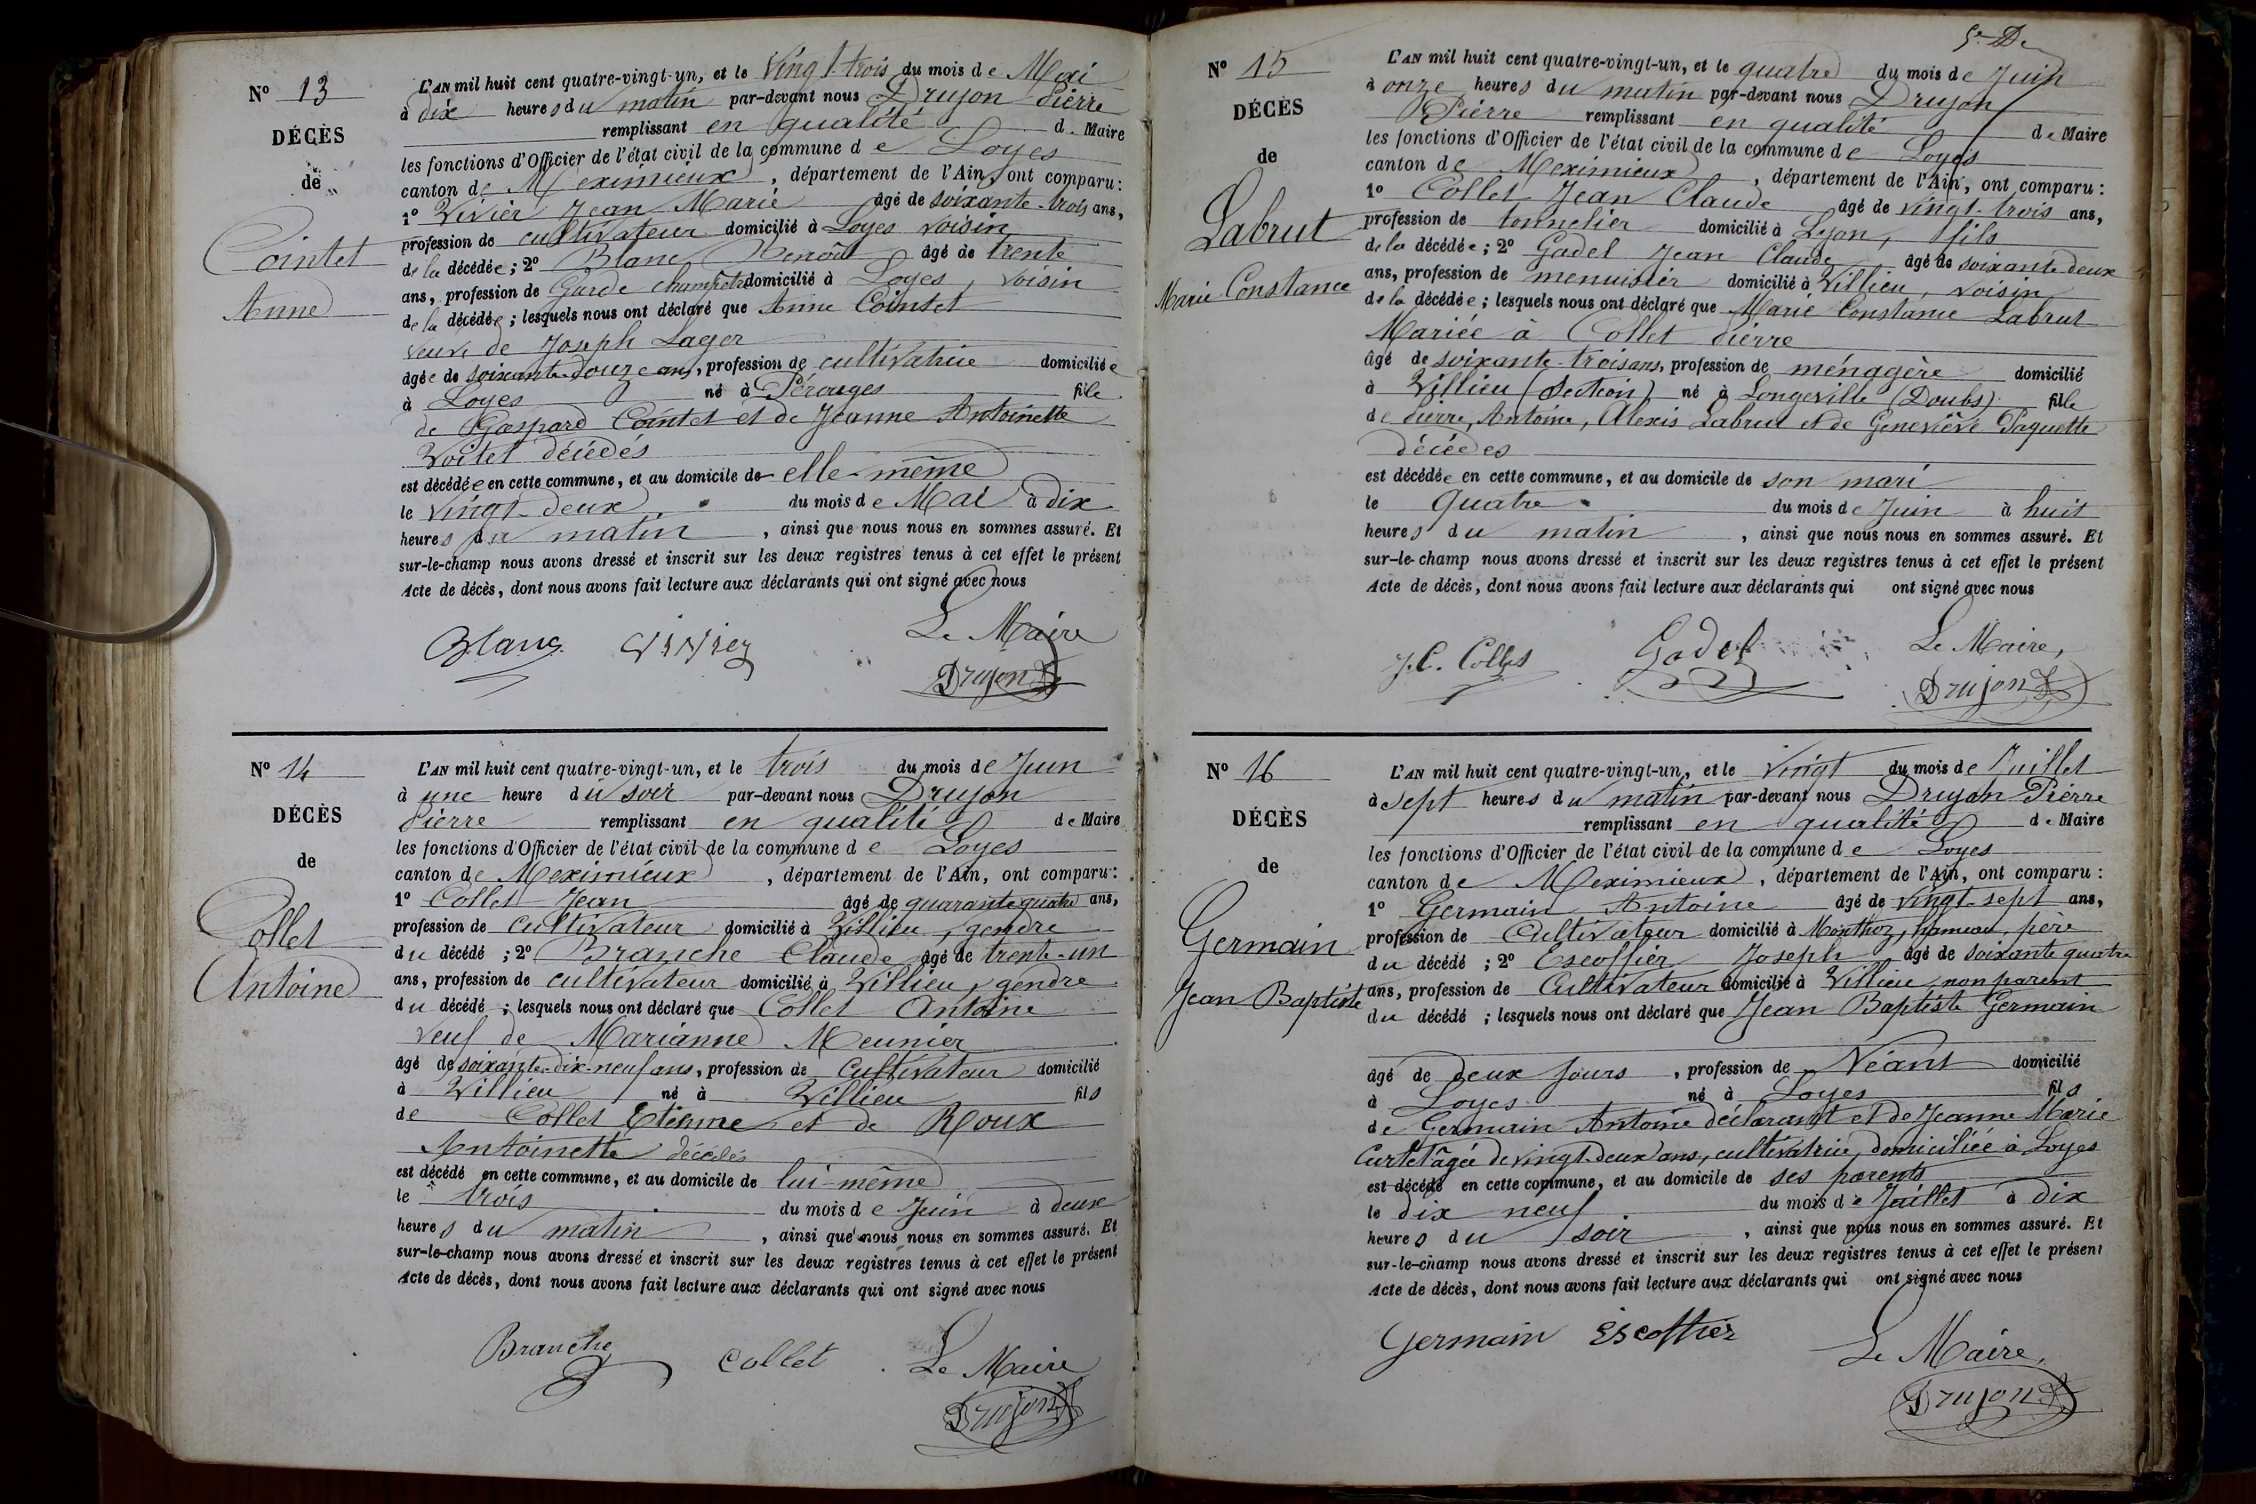 Nº 13
DÉCÈS
de
Cointet
Anne
L'AN mil huit cent quatre-vingt-un, et le vingt-trois du mois de Mai
à dix heures du matin par-devant nous Drujon Pierre
remplissant en qualité de Maire
les fonctions d'Officier de l'état civil de la commune de Loyes
canton de Meximieux, département de l'Ain, ont comparu :
1º Vivier Jean Marie âgé de soixante-trois ans,
profession de cultivateur domicilié à Loyes voisin
de la décédée ; 2º Blanc Benoît âgé de trente
ans, profession de Garde champêtre domicilié à Loyes, voisin
de la décédée ; lesquels nous ont déclaré que Anne Cointet
veuve de Joseph Lager
âgée de soixante-douze ans, profession de cultivatrice domiciliée
à Loyes né à Pérouges fille
de Gaspard Cointet et de Jeanne Antoinette
Voitet décédés
est décédée en cette commune, et au domicile de elle-même
le vingt-deux du mois de Mai à dix
heures du matin, ainsi que nous nous en sommes assuré. Et
sur-le-champ nous avons dressé et inscrit sur les deux registres tenus à cet effet le présent
Acte de décès, dont nous avons fait lecture aux déclarants qui ont signé avec nous
Blanc Vivier Le Maire
Drujon
Nº 14
DÉCÈS
de
Collet
Antoine
L'AN mil huit cent quatre-vingt-un, et le trois du mois de Juin
à une heure du soir par-devant nous Drujon
Pierre remplissant en qualité de Maire
les fonctions d'Officier de l'état civil de la commune de Loyes
canton de Meximieux, département de l'Ain, ont comparu :
1º Collet Jean âgé de quarante quatre ans,
profession de cultivateur domicilié à Villieu, gendre
du décédé ; 2º Branche Claude âgé de trente-un
ans, profession de cultivateur domicilié à Villieu, gendre
du décédé ; lesquels nous ont déclaré que Collet Antoine
veuf de Marianne Meunier
âgé de soixante-dix-neuf ans, profession de Cultivateur domicilié
à Villieu né à Villieu fils
de Collet Etienne et de Roux
Antoinette décédés
est décédé en cette commune, et au domicile de lui-même
le trois du mois de Juin à deux
heures du matin, ainsi que nous nous en sommes assuré. Et
sur-le-champ nous avons dressé et inscrit sur les deux registres tenus à cet effet le présent
Acte de décès, dont nous avons fait lecture aux déclarants qui ont signé avec nous
Branche Collet Le Maire
Drujon
Nº 15
DÉCÈS
de
Labrut
Marie Constance
L'AN mil huit cent quatre-vingt-un, et le quatre du mois de Juin
à onze heures du matin par-devant nous Drujon
Pierre remplissant en qualité de Maire
les fonctions d'Officier de l'état civil de la commune de Loyes
canton de Meximieux, département de l'Ain, ont comparu :
1º Collet Jean Claude âgé de vingt-trois ans,
profession de tonnelier domicilié à Lyon, fils
de la décédée ; 2º Gadel Jean Claude âgé de soixante deux
ans, profession de menuisier domicilié à Villieu, voisin
de la décédée ; lesquels nous ont déclaré que Marie Constance Labrut
Mariée à Collet Pierre
âgé de soixante-trois ans, profession de ménagère domicilié
à Villieu (Section) né à Longeville (Doubs) fille
de Pierre, Antoine, Alexis Labrut et de Geneviève Paquette
décédés
est décédée en cette commune, et au domicile de son mari
le Quatre du mois de Juin à huit
heures du matin, ainsi que nous nous en sommes assuré. Et
sur-le-champ nous avons dressé et inscrit sur les deux registres tenus à cet effet le présent
Acte de décès, dont nous avons fait lecture aux déclarants qui ont signé avec nous
J. C. Collet Gadel Le Maire,
Drujon
Nº 16
DÉCÈS
de
Germain
Jean Baptiste
L'AN mil huit cent quatre-vingt-un, et le vingt du mois de Juillet
à sept heures du matin par-devant nous Drujon Pierre
remplissant en qualité de Maire
les fonctions d'Officier de l'état civil de la commune de Loyes
canton de Meximieux, département de l'Ain, ont comparu :
1º Germain Antoine âgé de vingt-sept ans,
profession de Cultivateur domicilié à Monthoz, hameau, père
du décédé ; 2º Escoffier Joseph âgé de soixante quatre
ans, profession de Cultivateur domicilié à Villieu, non parent
du décédé ; lesquels nous ont déclaré que Jean Baptiste Germain
âgé de deux jours, profession de Néant domicilié
à Loyes né à Loyes fils
de Germain Antoine déclarant et de Jeanne Marie
Curtet âgée de vingt-deux ans, cultivatrice, domiciliée à Loyes
est décédé en cette commune, et au domicile de ses parents
le dix neuf du mois de Juillet à dix
heures du soir, ainsi que nous nous en sommes assuré. Et
sur-le-champ nous avons dressé et inscrit sur les deux registres tenus à cet effet le présent
Acte de décès, dont nous avons fait lecture aux déclarants qui ont signé avec nous
Germain Escoffier Le Maire,
Drujon